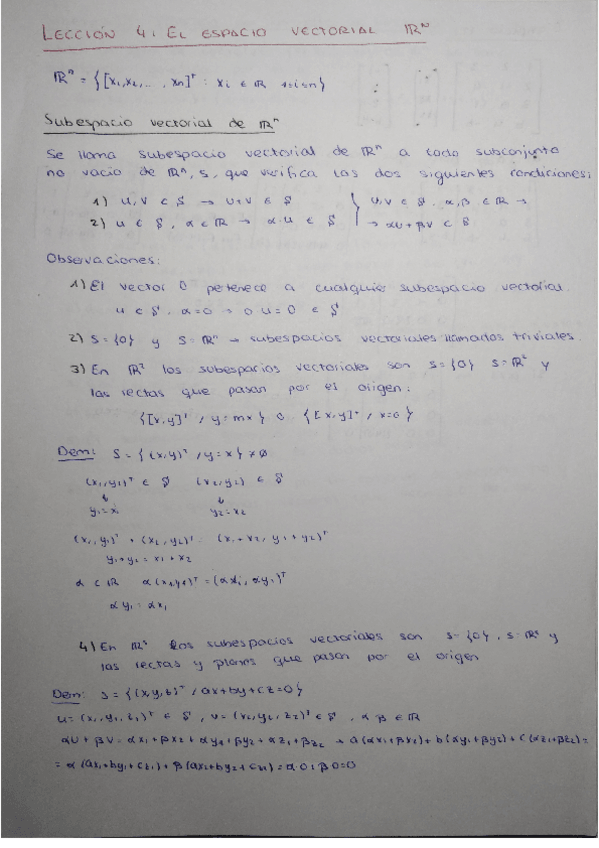 LECCIÓN 4: EL ESPACIO VECTORIAL ℝⁿ
ℝⁿ = {[x₁,x₂,..., xₙ]ᵀ : xᵢ ∈ ℝ 1≤i≤n}
Subespacio vectorial de ℝⁿ
Se llama subespacio vectorial de ℝⁿ a todo subconjunto
no vacío de ℝⁿ, S, que verifica las dos siguientes condiciones:
1) u,v ∈ S → u+v ∈ S } u,v ∈ S, α,β ∈ ℝ →
2) u ∈ S, α ∈ ℝ → α·u ∈ S → αu + βv ∈ S
Observaciones:
1) El vector 0 pertenece a cualquier subespacio vectorial.
u ∈ S, α=0 → 0·u=0 ∈ S
2) S={0} y S=ℝⁿ → subespacios vectoriales llamados triviales.
3) En ℝ² los subespacios vectoriales son S={0} S=ℝ² y
las rectas que pasan por el origen:
{[x,y]ᵀ / y=mx} o {[x,y]ᵀ / x=0}
Dem: S = {(x,y)ᵀ / y=x} ≠ ∅
(x₁,y₁)ᵀ ∈ S (x₂,y₂) ∈ S
↓ ↓
y₁=x₁ y₂=x₂
(x₁,y₁)ᵀ + (x₂,y₂)ᵀ (x₁+x₂, y₁+y₂)ᵀ
y₁+y₂ = x₁+x₂
α ∈ ℝ α(x₁,y₁)ᵀ = (αx₁, αy₁)ᵀ
αy₁ = αx₁
4) En ℝ³ los subespacios vectoriales son S={0}, S=ℝ³ y
las rectas y planos que pasan por el origen
Dem: S = {(x,y,z)ᵀ / ax+by+cz=0}
u=(x₁,y₁,z₁)ᵀ ∈ S, v=(x₂,y₂,z₂)ᵀ ∈ S, α β ∈ ℝ
αu + βv = αx₁+βx₂ + αy₁+βy₂ + αz₁+βz₂ → a(αx₁+βx₂)+b(αy₁+βy₂)+c(αz₁+βz₂)=
= α(ax₁+by₁+cz₁)+β(ax₂+by₂+cz₂)=α·0+β·0=0